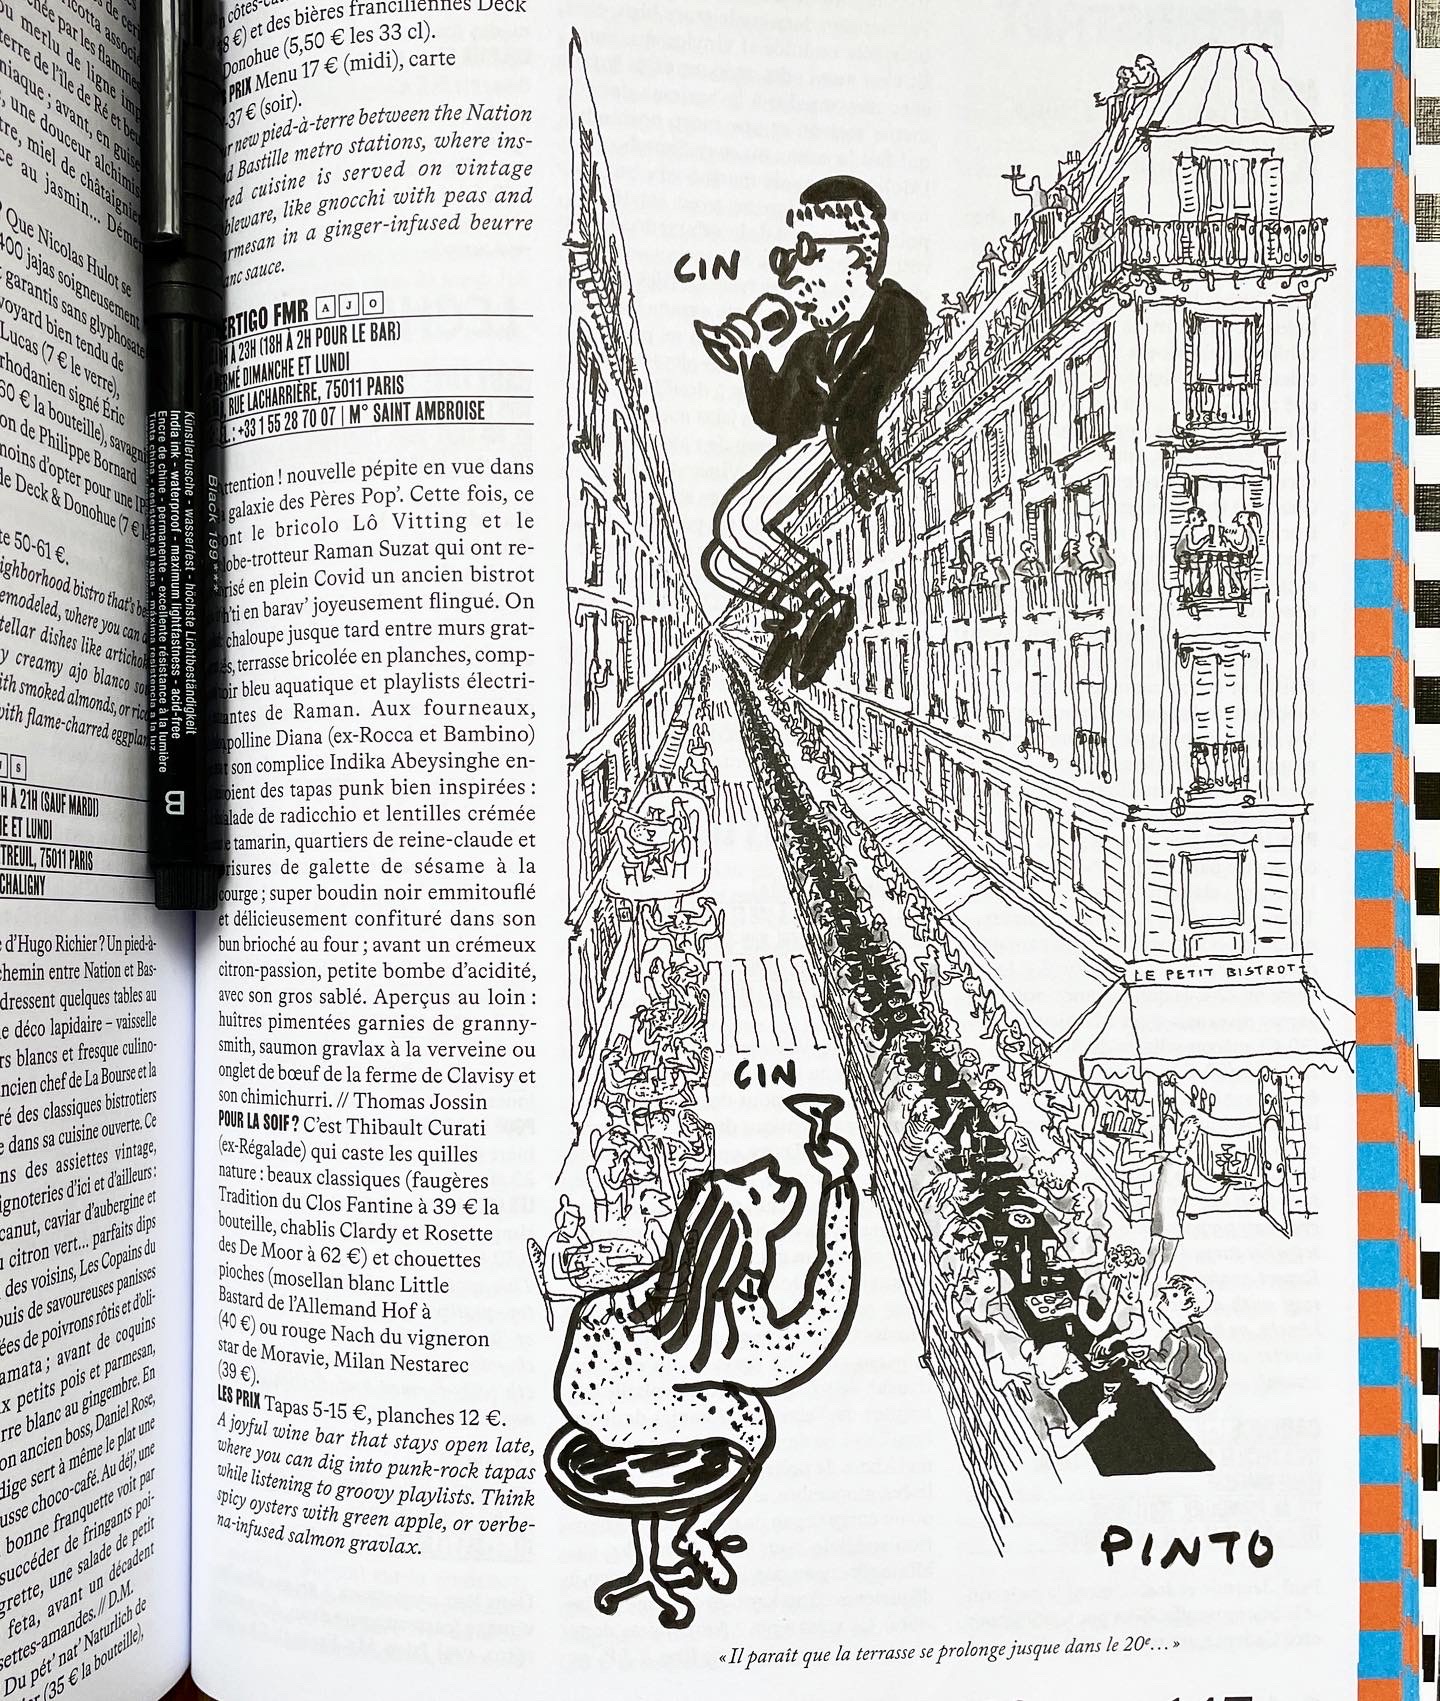 née par les flammes
u merlu de ligne
terre de l'île de Ré et
niaque ; avant, en guise
, une douceur alchimis
tre, miel de châtaignier
ce au jasmin... Déme
? Que Nicolas Hulot se
400 jajas soigneusement
garantis sans glyphosate
voyard bien tendu de
Lucas (7 € le verre),
rhodanien signé Éric
60 € la bouteille), savag
on de Philippe Bornard
moins d'opter pour une IP
de Deck & Donohue (7 €
te 50-61 €.
ighborhood bistro that's be
emodeled, where you can
tellar dishes like artichok
y creamy ajo blanco
ith smoked almonds, or
with flame-charred eggplan
H À 21H (SAUF MARDI)
HE ET LUNDI
TREUIL, 75011 PARIS
CHALIGNY
e d'Hugo Richier ? Un pied-à-
chemin entre Nation et Bas-
dressent quelques tables au
e déco lapidaire – vaisselle
rs blancs et fresque culino-
ancien chef de La Bourse et la
ré des classiques bistrotiers
e dans sa cuisine ouverte. Ce
ns des assiettes vintage,
ignoteries d'ici et d'ailleurs :
canut, caviar d'aubergine et
citron vert... parfaits dips
des voisins, Les Copains du
puis de savoureuses panisses
ées de poivrons rôtis et d'oli-
amata ; avant de coquins
x petits pois et parmesan,
rre blanc au gingembre. En
on ancien boss, Daniel Rose,
dige sert à même le plat une
usse choco-café. Au déj', une
bonne franquette voit par
succéder de fringants poi-
grette, une salade de petit
feta, avant un décadent
settes-amandes. // D.M.
Du pét' nat' Naturlich de
(35 € la bouteille),
Künstlertusche - wasserfest - höchste Lichtbeständigkeit
India ink - waterproof - maximum lightfastness - acid-free
Encre de chine - permanente - excellente résistance à la lumière
Tinta china - resistente al agua - máxima resistencia a la luz
Black 199 ****
n côtes-
8 €) et des bières franciliennes Deck
Donohue (5,50 € les 33 cl).
PRIX Menu 17 € (midi), carte
-37 € (soir).
r new pied-à-terre between the Nation
d Bastille metro stations, where ins-
red cuisine is served on vintage
bleware, like gnocchi with peas and
rmesan in a ginger-infused beurre
anc sauce.
ERTIGO FMR A J O
H À 23H (18H À 2H POUR LE BAR)
ERMÉ DIMANCHE ET LUNDI
, RUE LACHARRIÈRE, 75011 PARIS
L : +33 1 55 28 70 07 | M° SAINT AMBROISE
ttention ! nouvelle pépite en vue dans
galaxie des Pères Pop'. Cette fois, ce
ont le bricolo Lô Vitting et le
lobe-trotteur Raman Suzat qui ont re-
risé en plein Covid un ancien bistrot
h'ti en barav' joyeusement flingué. On
chaloupe jusque tard entre murs grat-
s, terrasse bricolée en planches, comp-
oir bleu aquatique et playlists électri-
antes de Raman. Aux fourneaux,
polline Diana (ex-Rocca et Bambino)
t son complice Indika Abeysinghe en-
oient des tapas punk bien inspirées :
alade de radicchio et lentilles crémée
e tamarin, quartiers de reine-claude et
brisures de galette de sésame à la
courge ; super boudin noir emmitouflé
et délicieusement confituré dans son
bun brioché au four ; avant un crémeux
citron-passion, petite bombe d'acidité,
avec son gros sablé. Aperçus au loin :
huîtres pimentées garnies de granny-
smith, saumon gravlax à la verveine ou
onglet de bœuf de la ferme de Clavisy et
son chimichurri. // Thomas Jossin
POUR LA SOIF ? C'est Thibault Curati
(ex-Régalade) qui caste les quilles
nature : beaux classiques (faugères
Tradition du Clos Fantine à 39 € la
bouteille, chablis Clardy et Rosette
des De Moor à 62 €) et chouettes
pioches (mosellan blanc Little
Bastard de l'Allemand Hof à
(40 €) ou rouge Nach du vigneron
star de Moravie, Milan Nestarec
(39 €).
LES PRIX Tapas 5-15 €, planches 12 €.
A joyful wine bar that stays open late,
where you can dig into punk-rock tapas
while listening to groovy playlists. Think
spicy oysters with green apple, or verbe-
na-infused salmon gravlax.
CIN
LE PETIT BISTROT
CIN
PINTO
«Il paraît que la terrasse se prolonge jusque dans le 20e...»